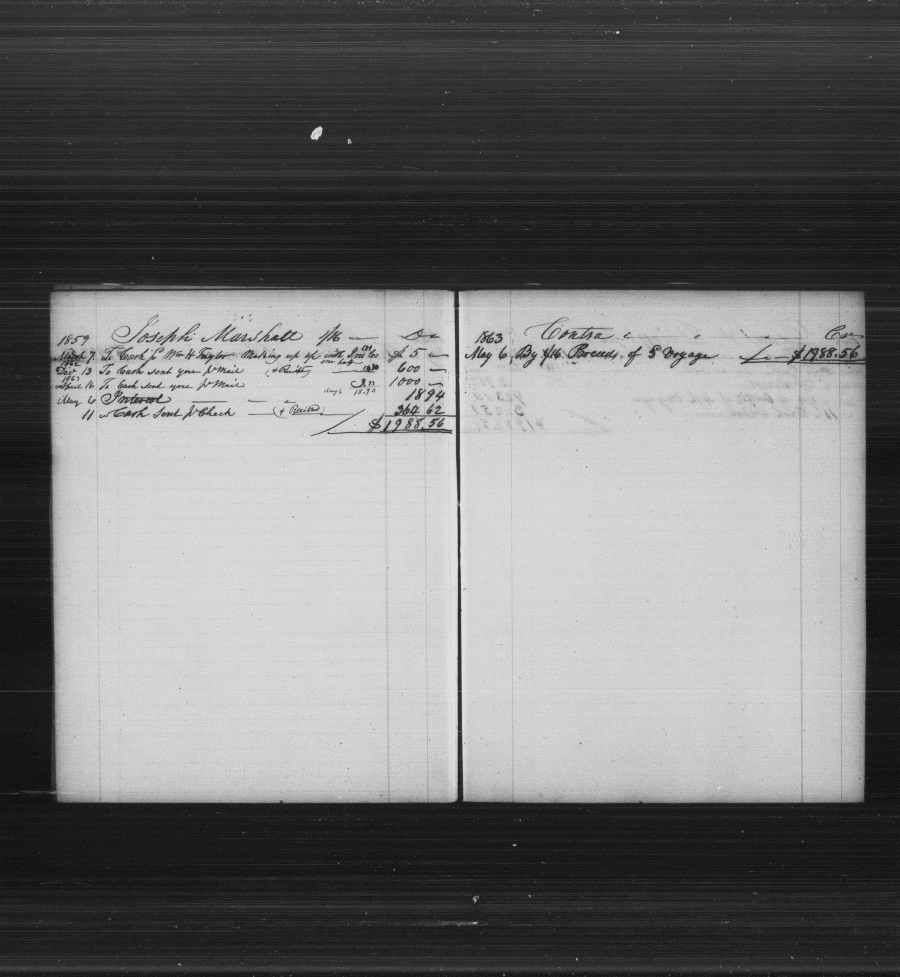 1859 Joseph Marshall 1/16 — Dr
March 7. To Cash pr Wm H Taylor Making up with $ 5 —
1862
Decr 13 To Cash sent you pr Mail 600 —
1863
April 16 To Cash sent you pr Mail 1000 —
May 6 Interest — — — May 6 18.94 18 94
11 " Cash Sent pr Check 364 62
$1988.56
1863 Contra Cr
May 6 By 1/16 Proceeds of 5 Voyage $1988.56